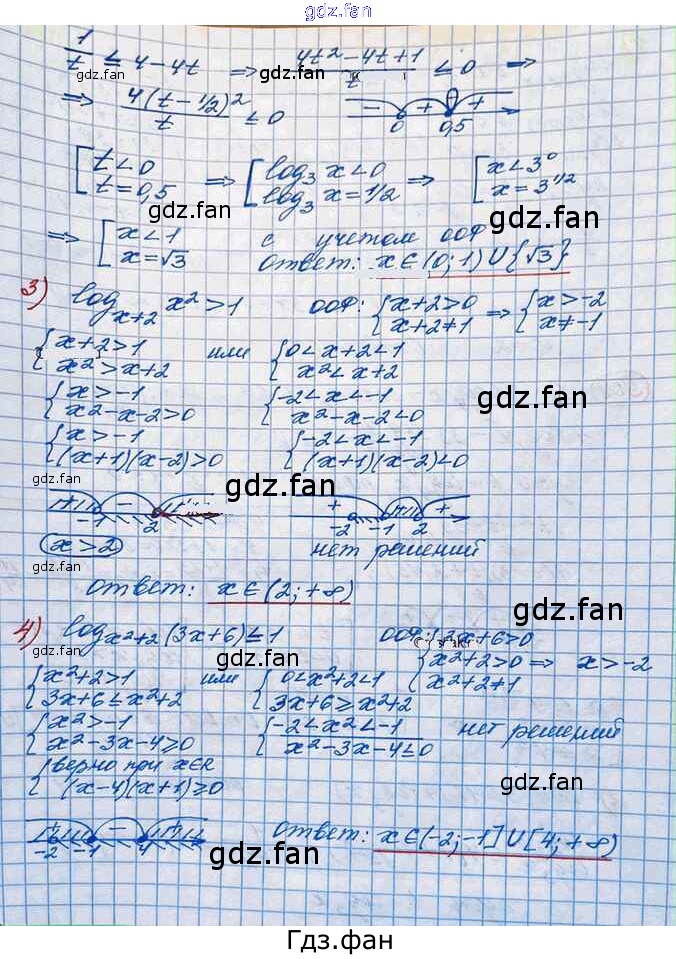 gdz.fan
1/t ≤ 4-4t ⇒ (4t²-4t+1)/t ≤ 0 ⇒
gdz.fan gdz.fan
⇒ 4(t-1/2)²/t ≤ 0 - + + 0 0,5
[t<0 t=0,5 ⇒ [log₃ x<0 log₃ x=1/2 ⇒ [x<3⁰ x=3^(1/2)
gdz.fan gdz.fan
⇒ [x<1 x=√3 с учетом ООФ
ответ: x∈(0;1)∪{√3}
3) log_(x+2) x²>1 ООФ: {x+2>0 x+2≠1 ⇒ {x>-2 x≠-1
{x+2>1 x²>x+2 или {0<x+2<1 x²<x+2
gdz.fan gdz.fan
{x>-1 x²-x-2>0 {-2<x<-1 x²-x-2<0
{x>-1 (x+1)(x-2)>0 {-2<x<-1 (x+1)(x-2)<0
gdz.fan gdz.fan
+ - + -1 2 + - + -2 -1 2
x>2 нет решений
gdz.fan
ответ: x∈(2;+∞)
gdz.fan
4) log_(x²+2) (3x+6)≤1 ООФ: {3x+6>0 x²+2>0 x²+2≠1 ⇒ x>-2
gdz.fan
{x²+2>1 3x+6≤x²+2 или {0<x²+2<1 3x+6≥x²+2
{x²>-1 x²-3x-4≥0 {-2<x²<-1 x²-3x-4≤0 нет решений
{верно при x∈R (x-4)(x+1)≥0
gdz.fan gdz.fan
+ - + -2 -1 4 ответ: x∈(-2;-1]∪[4;+∞)
gdz.fan gdz.fan
Гдз.фан